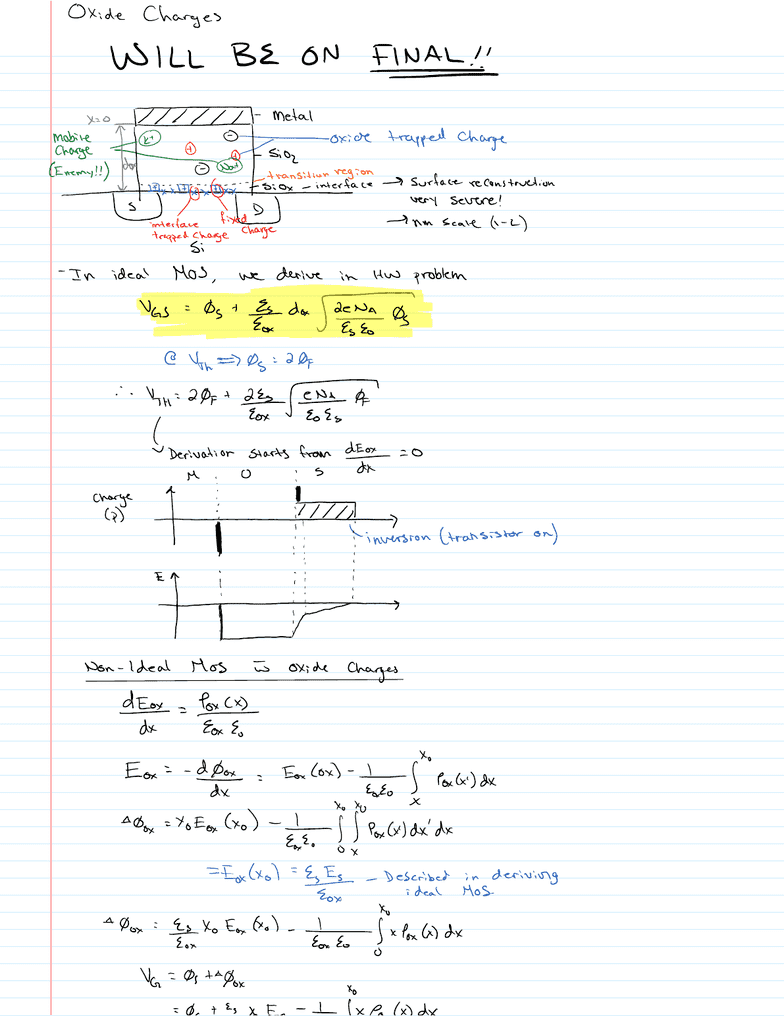 Oxide Charges
WILL BE ON FINAL!!
x=0
Metal
Mobile Charge (Enemy!!)
K+
−
+
oxide trapped Charge
dox
+
SiO2
−
Na+
transition region
SiOx - interface → Surface reconstruction very severe!
→ nm scale (1-2)
S
D
interface trapped charge
fixed charge
Si
- In ideal MOS, we derive in HW problem
VGS = ϕS + εs/εox dox √(2eNA/(εs ε0) ϕS)
@ VTh ⇒ ϕS = 2ϕF
∴ VTH = 2ϕF + 2εs/εox √(eNA/(ε0 εs) ϕF)
Derivation starts from dEox/dx = 0
M O S
Charge (ρ)
inversion (transistor on)
E
Non-Ideal MOS w̄ oxide Charges
dEox/dx = ρox(x)/(εox ε0)
Eox = -dϕox/dx = Eox(ox) - 1/(εox ε0) ∫_x^x0 ρox(x') dx
Δϕox = x0 Eox(x0) - 1/(εox ε0) ∫_0^x0 ∫_x^x0 ρox(x) dx' dx
= Eox(x0) = εs Es/εox - Described in deriving ideal MOS
Δϕox = εs/εox x0 Eox(x0) - 1/(εox ε0) ∫_0^x0 x ρox(x) dx
VG = ϕS + Δϕox